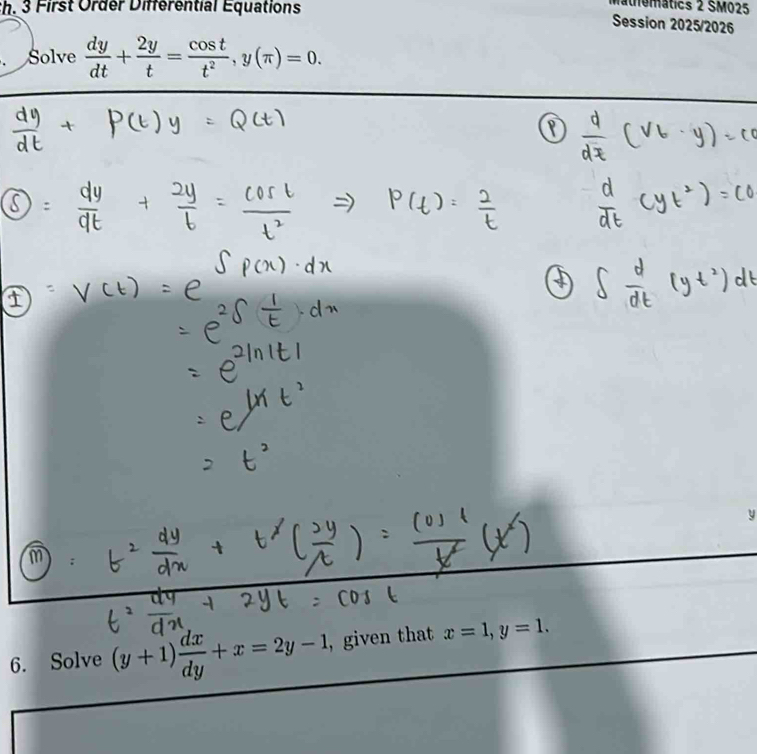 Ch. 3 First Order Differential Equations
Mathematics 2 SM025
Session 2025/2026
Solve dy/dt + 2y/t = cos t/t², y(π) = 0.
dy/dt + P(t) y = Q(t)
Ⓢ = dy/dt + 2y/t = cos t/t² ⇒ P(t) = 2/t
Ⓘ = V(t) = e^(∫ p(x) · dx)
= e^(2∫ 1/t · dx)
= e^(2 ln |t|)
= e^(ln t²)
= t²
Ⓜ : t² dy/dx + t² (2y/t) = cos t/t² (t²)
t² dy/dx + 2yt = cos t
Ⓟ d/dt (Vt · y) = co
d/dt (yt²) = co
∫ d/dt (yt²) dt
y
6. Solve (y + 1) dx/dy + x = 2y − 1, given that x = 1, y = 1.